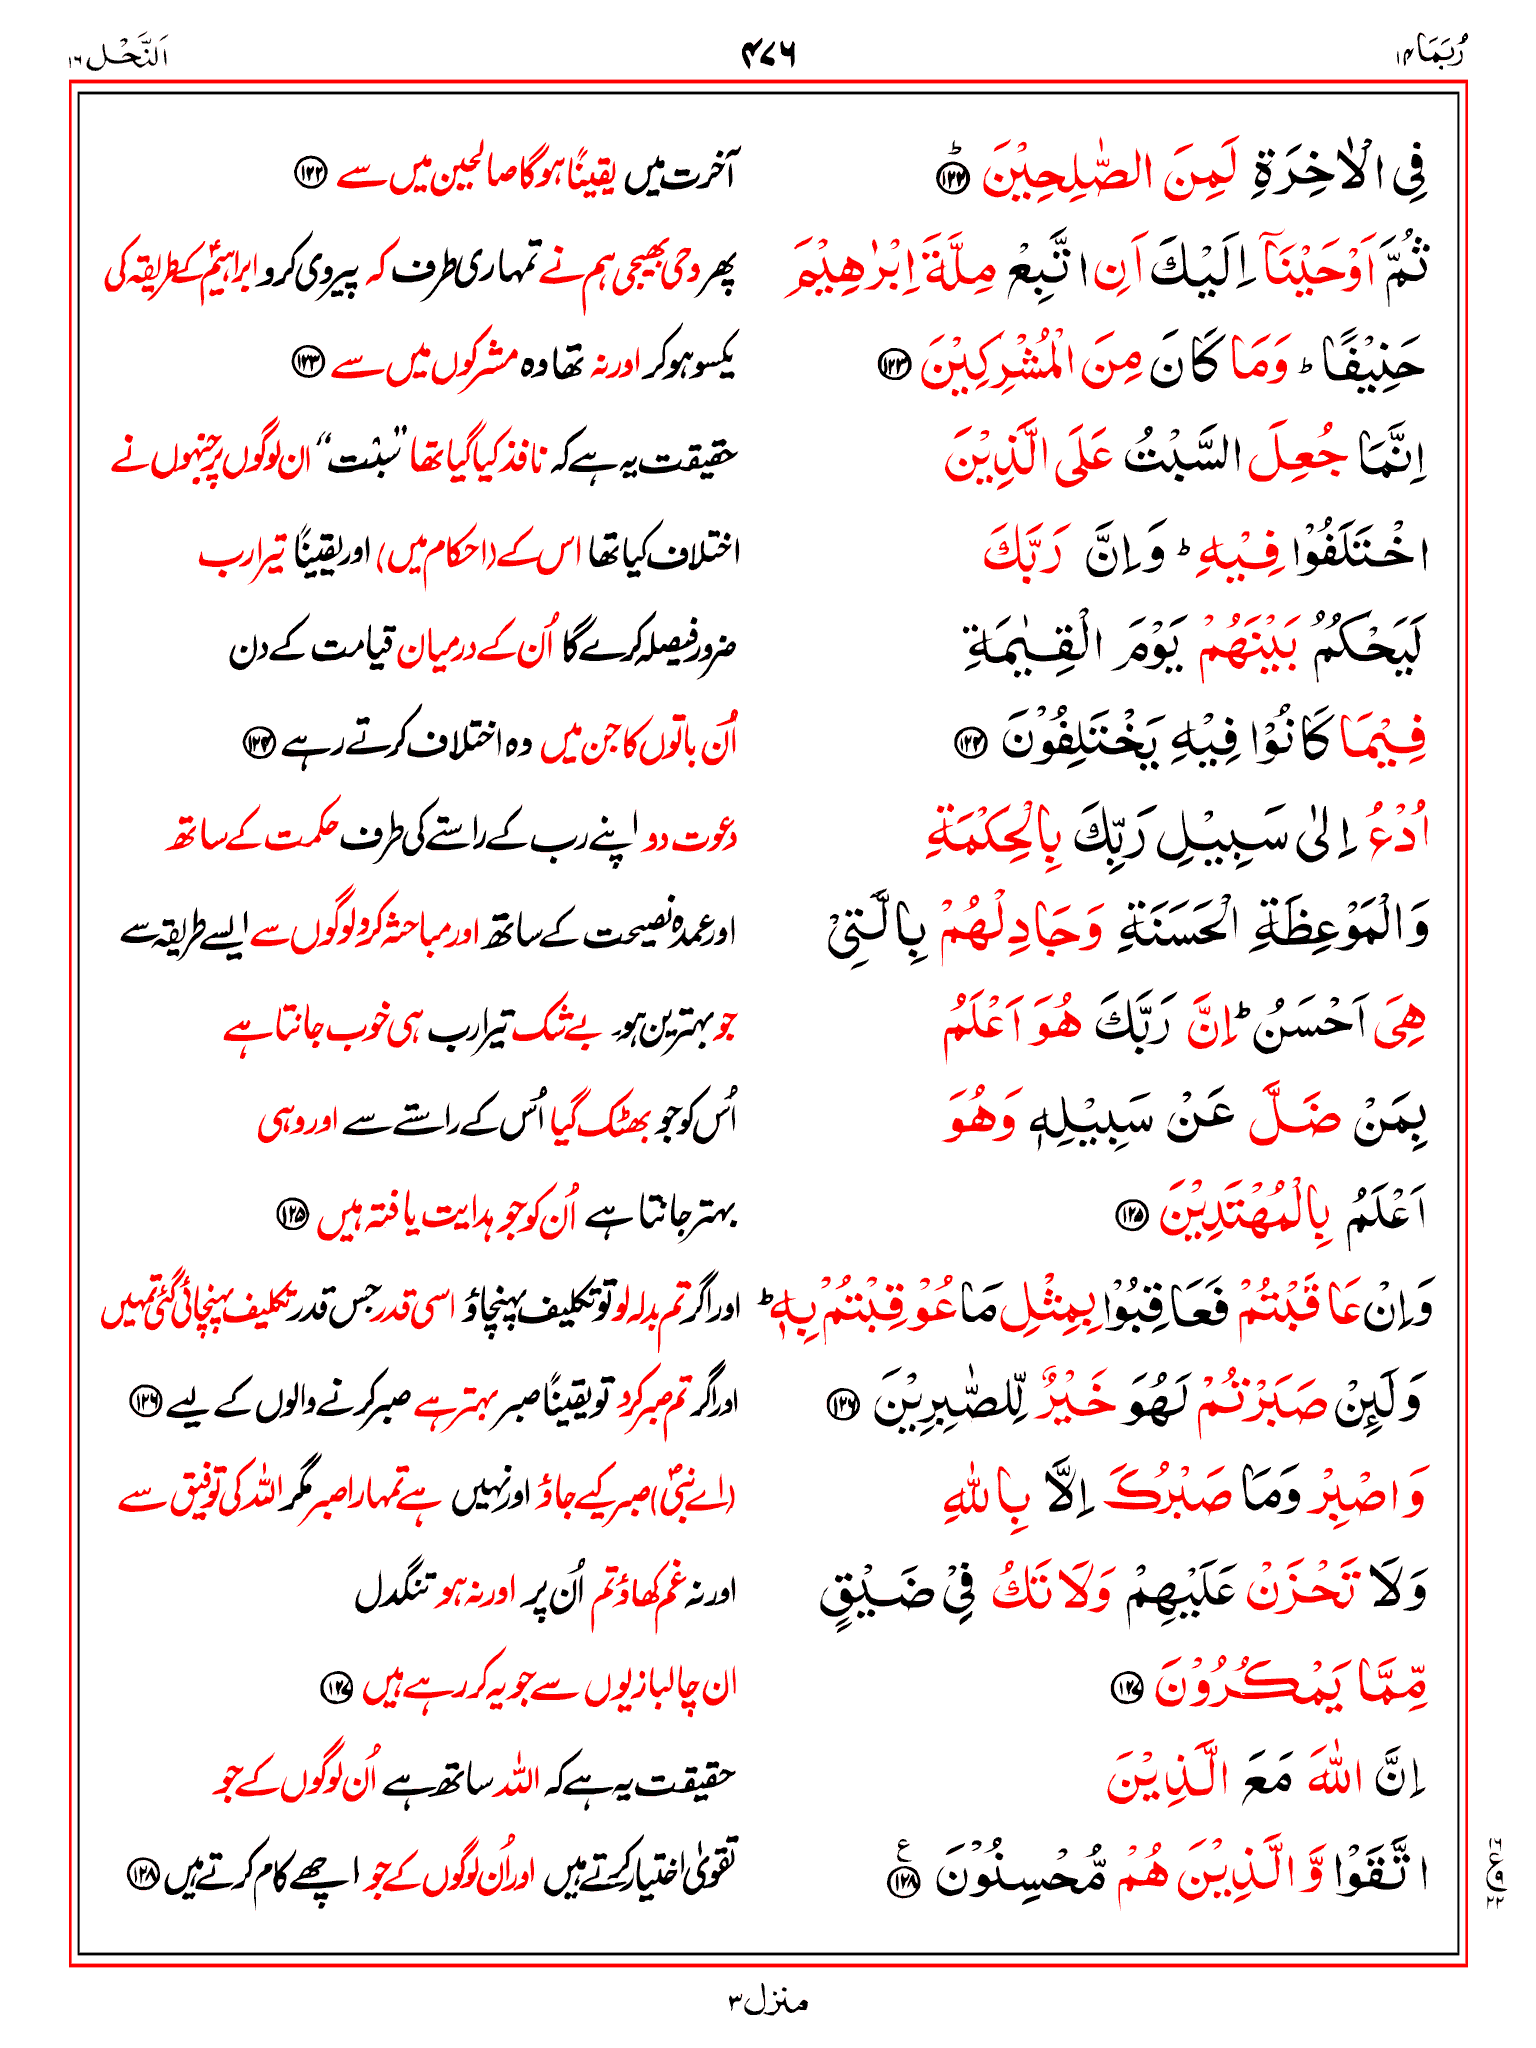 رُبَمَا ۱۴
۴۷۶
اَلنَّحْل ۱۶
فِی الْاٰخِرَةِ لَمِنَ الصّٰلِحِیْنَ ؕ﴿۱۲۲﴾
آخرت میں یقیناً ہوگا صالحین میں سے ﴿۱۲۲﴾
ثُمَّ اَوْحَیْنَاۤ اِلَیْكَ اَنِ اتَّبِعْ مِلَّةَ اِبْرٰهِیْمَ
پھر وحی بھیجی ہم نے تمہاری طرف کہ پیروی کرو ابراہیمؑ کے طریقہ کی
حَنِیْفًا ؕ وَمَا كَانَ مِنَ الْمُشْرِكِیْنَ ﴿۱۲۳﴾
یکسو ہو کر اور نہ تھا وہ مشرکوں میں سے ﴿۱۲۳﴾
اِنَّمَا جُعِلَ السَّبْتُ عَلَی الَّذِیْنَ
حقیقت یہ ہے کہ نافذ کیا گیا تھا ”سَبْت“ ان لوگوں پر جنہوں نے
اخْتَلَفُوْا فِیْهِ ؕ وَاِنَّ رَبَّكَ
اختلاف کیا تھا اس کے (احکام میں) اور یقیناً تیرا رب
لَیَحْكُمُ بَیْنَهُمْ یَوْمَ الْقِیٰمَةِ
ضرور فیصلہ کرے گا اُن کے درمیان قیامت کے دن
فِیْمَا كَانُوْا فِیْهِ یَخْتَلِفُوْنَ ﴿۱۲۴﴾
اُن باتوں کا جن میں وہ اختلاف کرتے رہے ﴿۱۲۴﴾
اُدْعُ اِلٰی سَبِیْلِ رَبِّكَ بِالْحِكْمَةِ
دعوت دو اپنے رب کے راستے کی طرف حکمت کے ساتھ
وَالْمَوْعِظَةِ الْحَسَنَةِ وَجَادِلْهُمْ بِالَّتِیْ
اور عمدہ نصیحت کے ساتھ اور مباحثہ کرو لوگوں سے ایسے طریقہ سے
هِیَ اَحْسَنُ ؕ اِنَّ رَبَّكَ هُوَ اَعْلَمُ
جو بہترین ہو۔ بے شک تیرا رب ہی خوب جانتا ہے
بِمَنْ ضَلَّ عَنْ سَبِیْلِهٖ وَهُوَ
اُس کو جو بھٹک گیا اُس کے راستے سے اور وہی
اَعْلَمُ بِالْمُهْتَدِیْنَ ﴿۱۲۵﴾
بہتر جانتا ہے اُن کو جو ہدایت یافتہ ہیں ﴿۱۲۵﴾
وَاِنْ عَاقَبْتُمْ فَعَاقِبُوْا بِمِثْلِ مَا عُوْقِبْتُمْ بِهٖ ؕ
اور اگر تم بدلہ لو تو تکلیف پہنچاؤ اسی قدر جس قدر تکلیف پہنچائی گئی تمہیں
وَلَئِنْ صَبَرْتُمْ لَهُوَ خَیْرٌ لِّلصّٰبِرِیْنَ ﴿۱۲۶﴾
اور اگر تم صبر کرو تو یقیناً صبر بہتر ہے صبر کرنے والوں کے لیے ﴿۱۲۶﴾
وَاصْبِرْ وَمَا صَبْرُكَ اِلَّا بِاللهِ
(اے نبیؐ) صبر کیے جاؤ اور نہیں ہے تمہارا صبر مگر اللہ کی توفیق سے
وَلَا تَحْزَنْ عَلَیْهِمْ وَلَا تَكُ فِیْ ضَیْقٍ
اور نہ غم کھاؤ تم اُن پر اور نہ ہو تنگدل
مِّمَّا یَمْكُرُوْنَ ﴿۱۲۷﴾
ان چالبازیوں سے جو یہ کر رہے ہیں ﴿۱۲۷﴾
اِنَّ اللهَ مَعَ الَّذِیْنَ
حقیقت یہ ہے کہ اللہ ساتھ ہے اُن لوگوں کے جو
اتَّقَوْا وَّالَّذِیْنَ هُمْ مُّحْسِنُوْنَ ﴿۱۲۸﴾ ع
تقویٰ اختیار کرتے ہیں اور اُن لوگوں کے جو اچھے کام کرتے ہیں ﴿۱۲۸﴾
۱۶
ع ۹
۲۲
منزل ۳